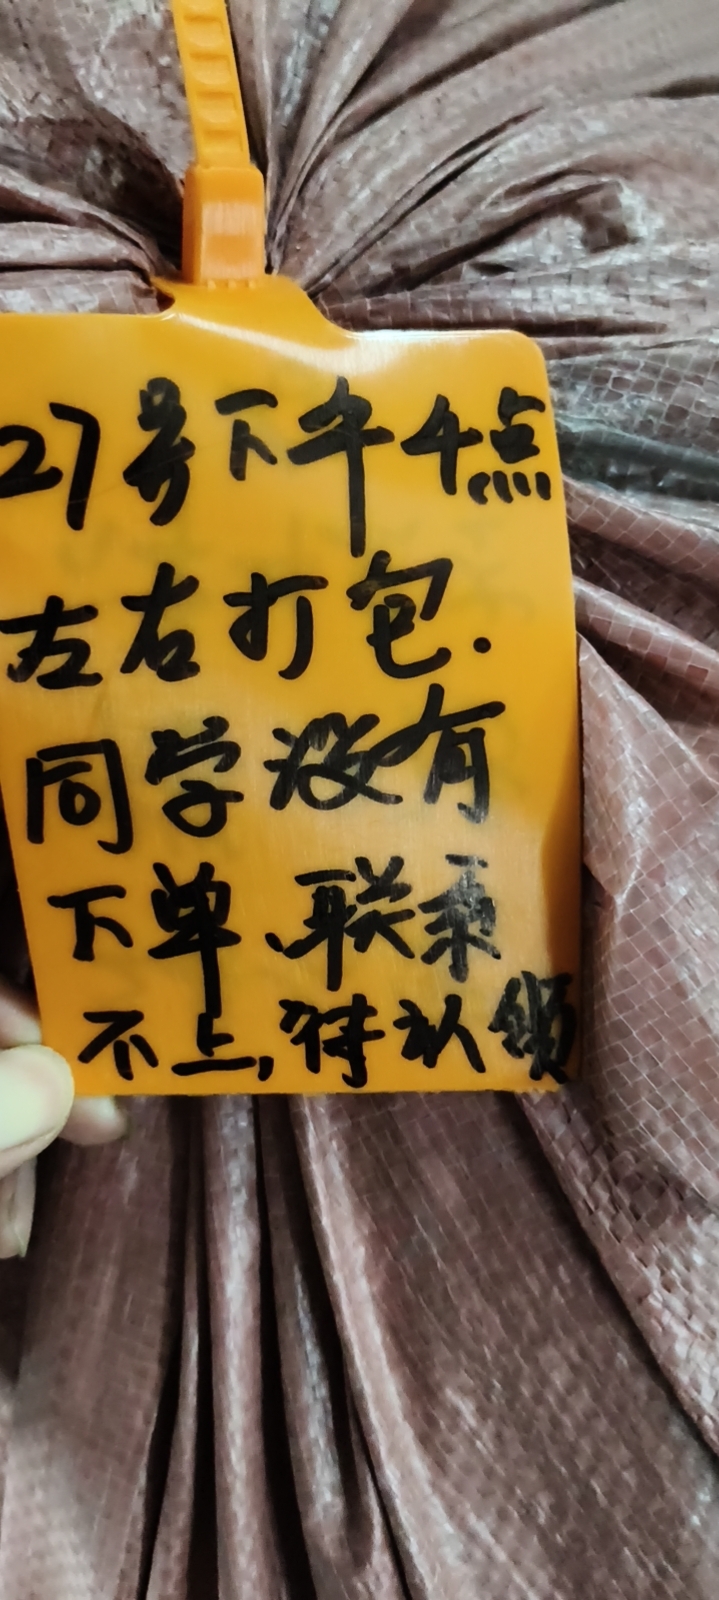 27号下午4点
左右打包.
同学没有
下单、联系
不上,待认领